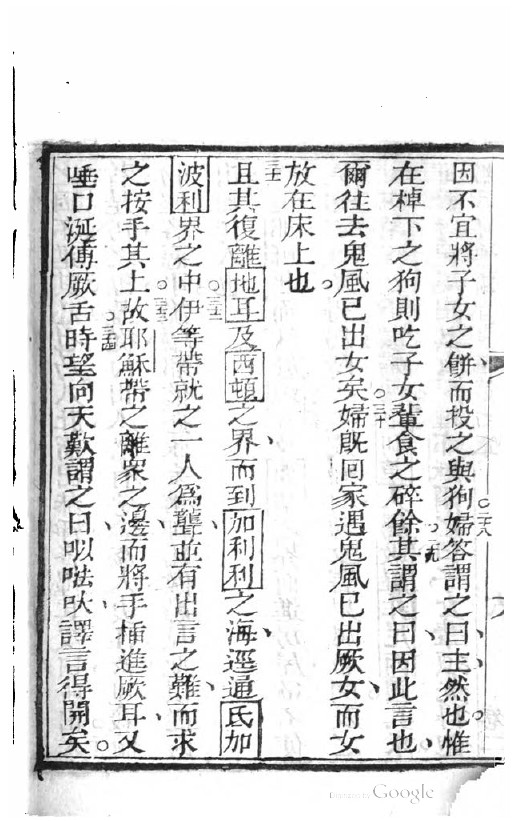 因不宜將子女之餅、而投之與狗。二十八婦答謂之曰、主、然也。惟
在棹下之狗則吃子女輩食之碎餘。二十九其謂之曰、因此言也、
爾往去鬼風已出女矣。三十婦旣回家遇鬼風已出厥女、而女
放在床上也。
三十一且其復離地耳及西頓之界、而到加利利之海、逕通氐加
波利界之中。三十二伊等帶就之一人爲聾、並有出言之難、而求
之按手其上。三十三故耶穌帶之離衆之邊、而將手插進厥耳、又
唾口涎傅厥舌。三十四時望向天歎謂之曰、呶㕸吠、譯言得開矣。
Digitized by Google